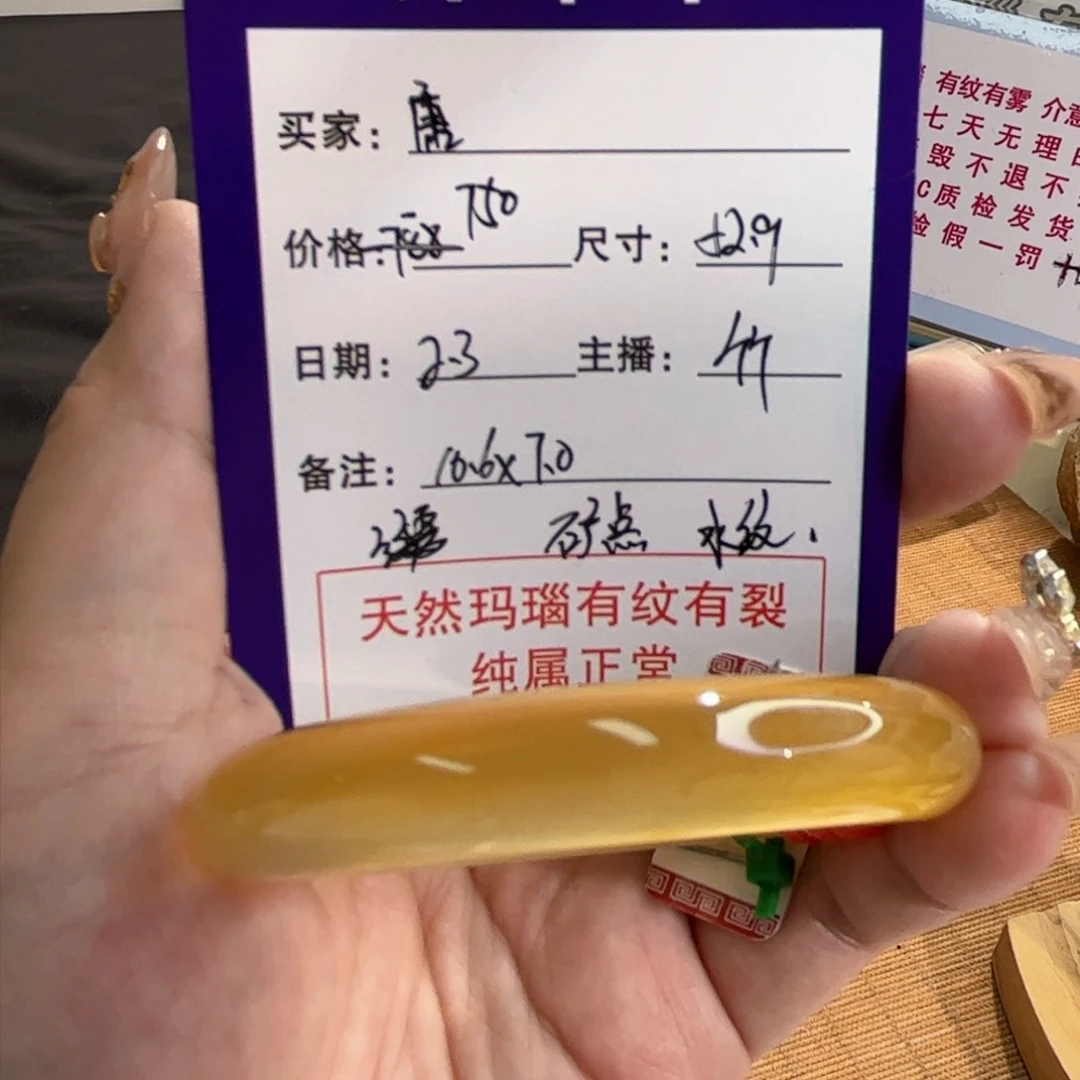 买家：唐
价格：750 尺寸：52.9
日期：2.3 主播：竹
备注：10.6×7.0
矿点 水纹.
天然玛瑙有纹有裂
纯属正常
有纹有雾 介意
七天无理由
毁不退不
C质检发货
假一罚